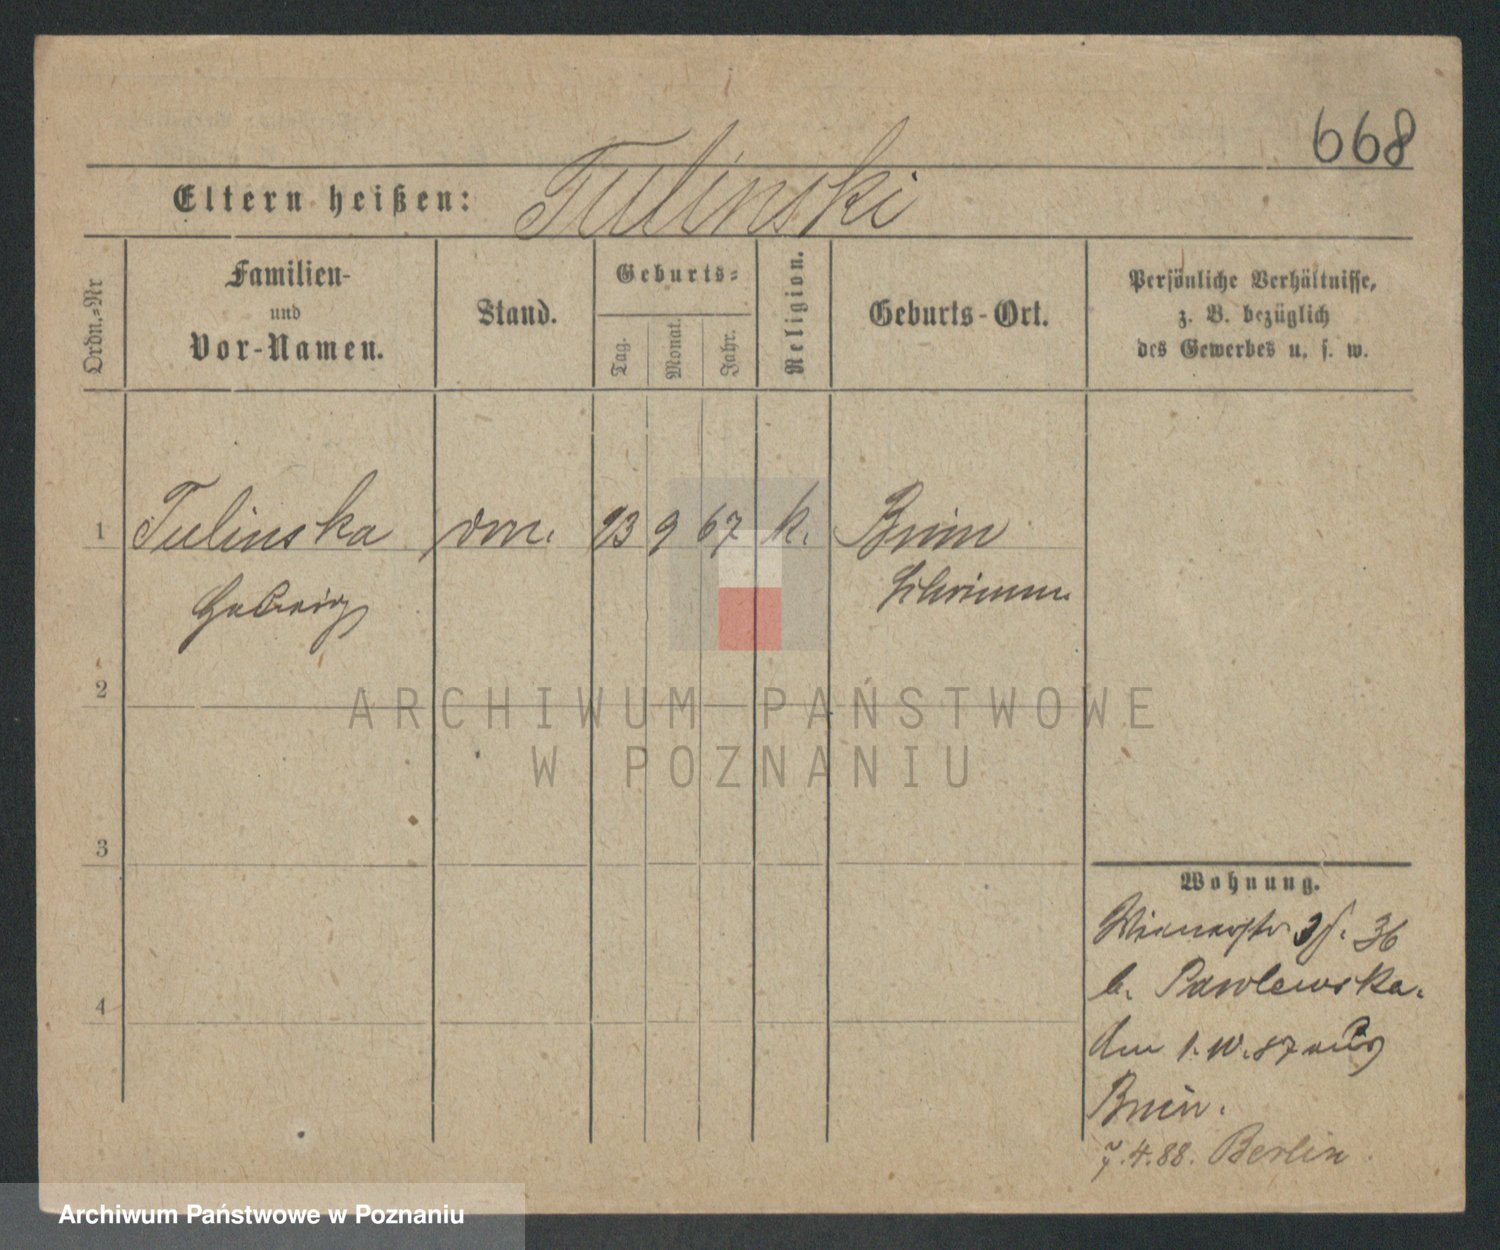 668
Eltern heißen: Tulinski
Ordn.-Nr
Familien-
und
Vor-Namen.
Stand.
Geburts-
Tag.
Monat.
Jahr.
Religion.
Geburts-Ort.
Persönliche Verhältnisse,
z. B. bezüglich
des Gewerbes u. s. w.
1 Tulinska 13 9 67 k. Bnin
Hedwig Schrimm
2
ARCHIWUM PAŃSTWOWE
W POZNANIU
3
Wohnung.
Wienerstr 36
b. Pawlewska.
4
den 1.10.87 aus
Bnin.
7.4.88. Berlin.
Archiwum Państwowe w Poznaniu